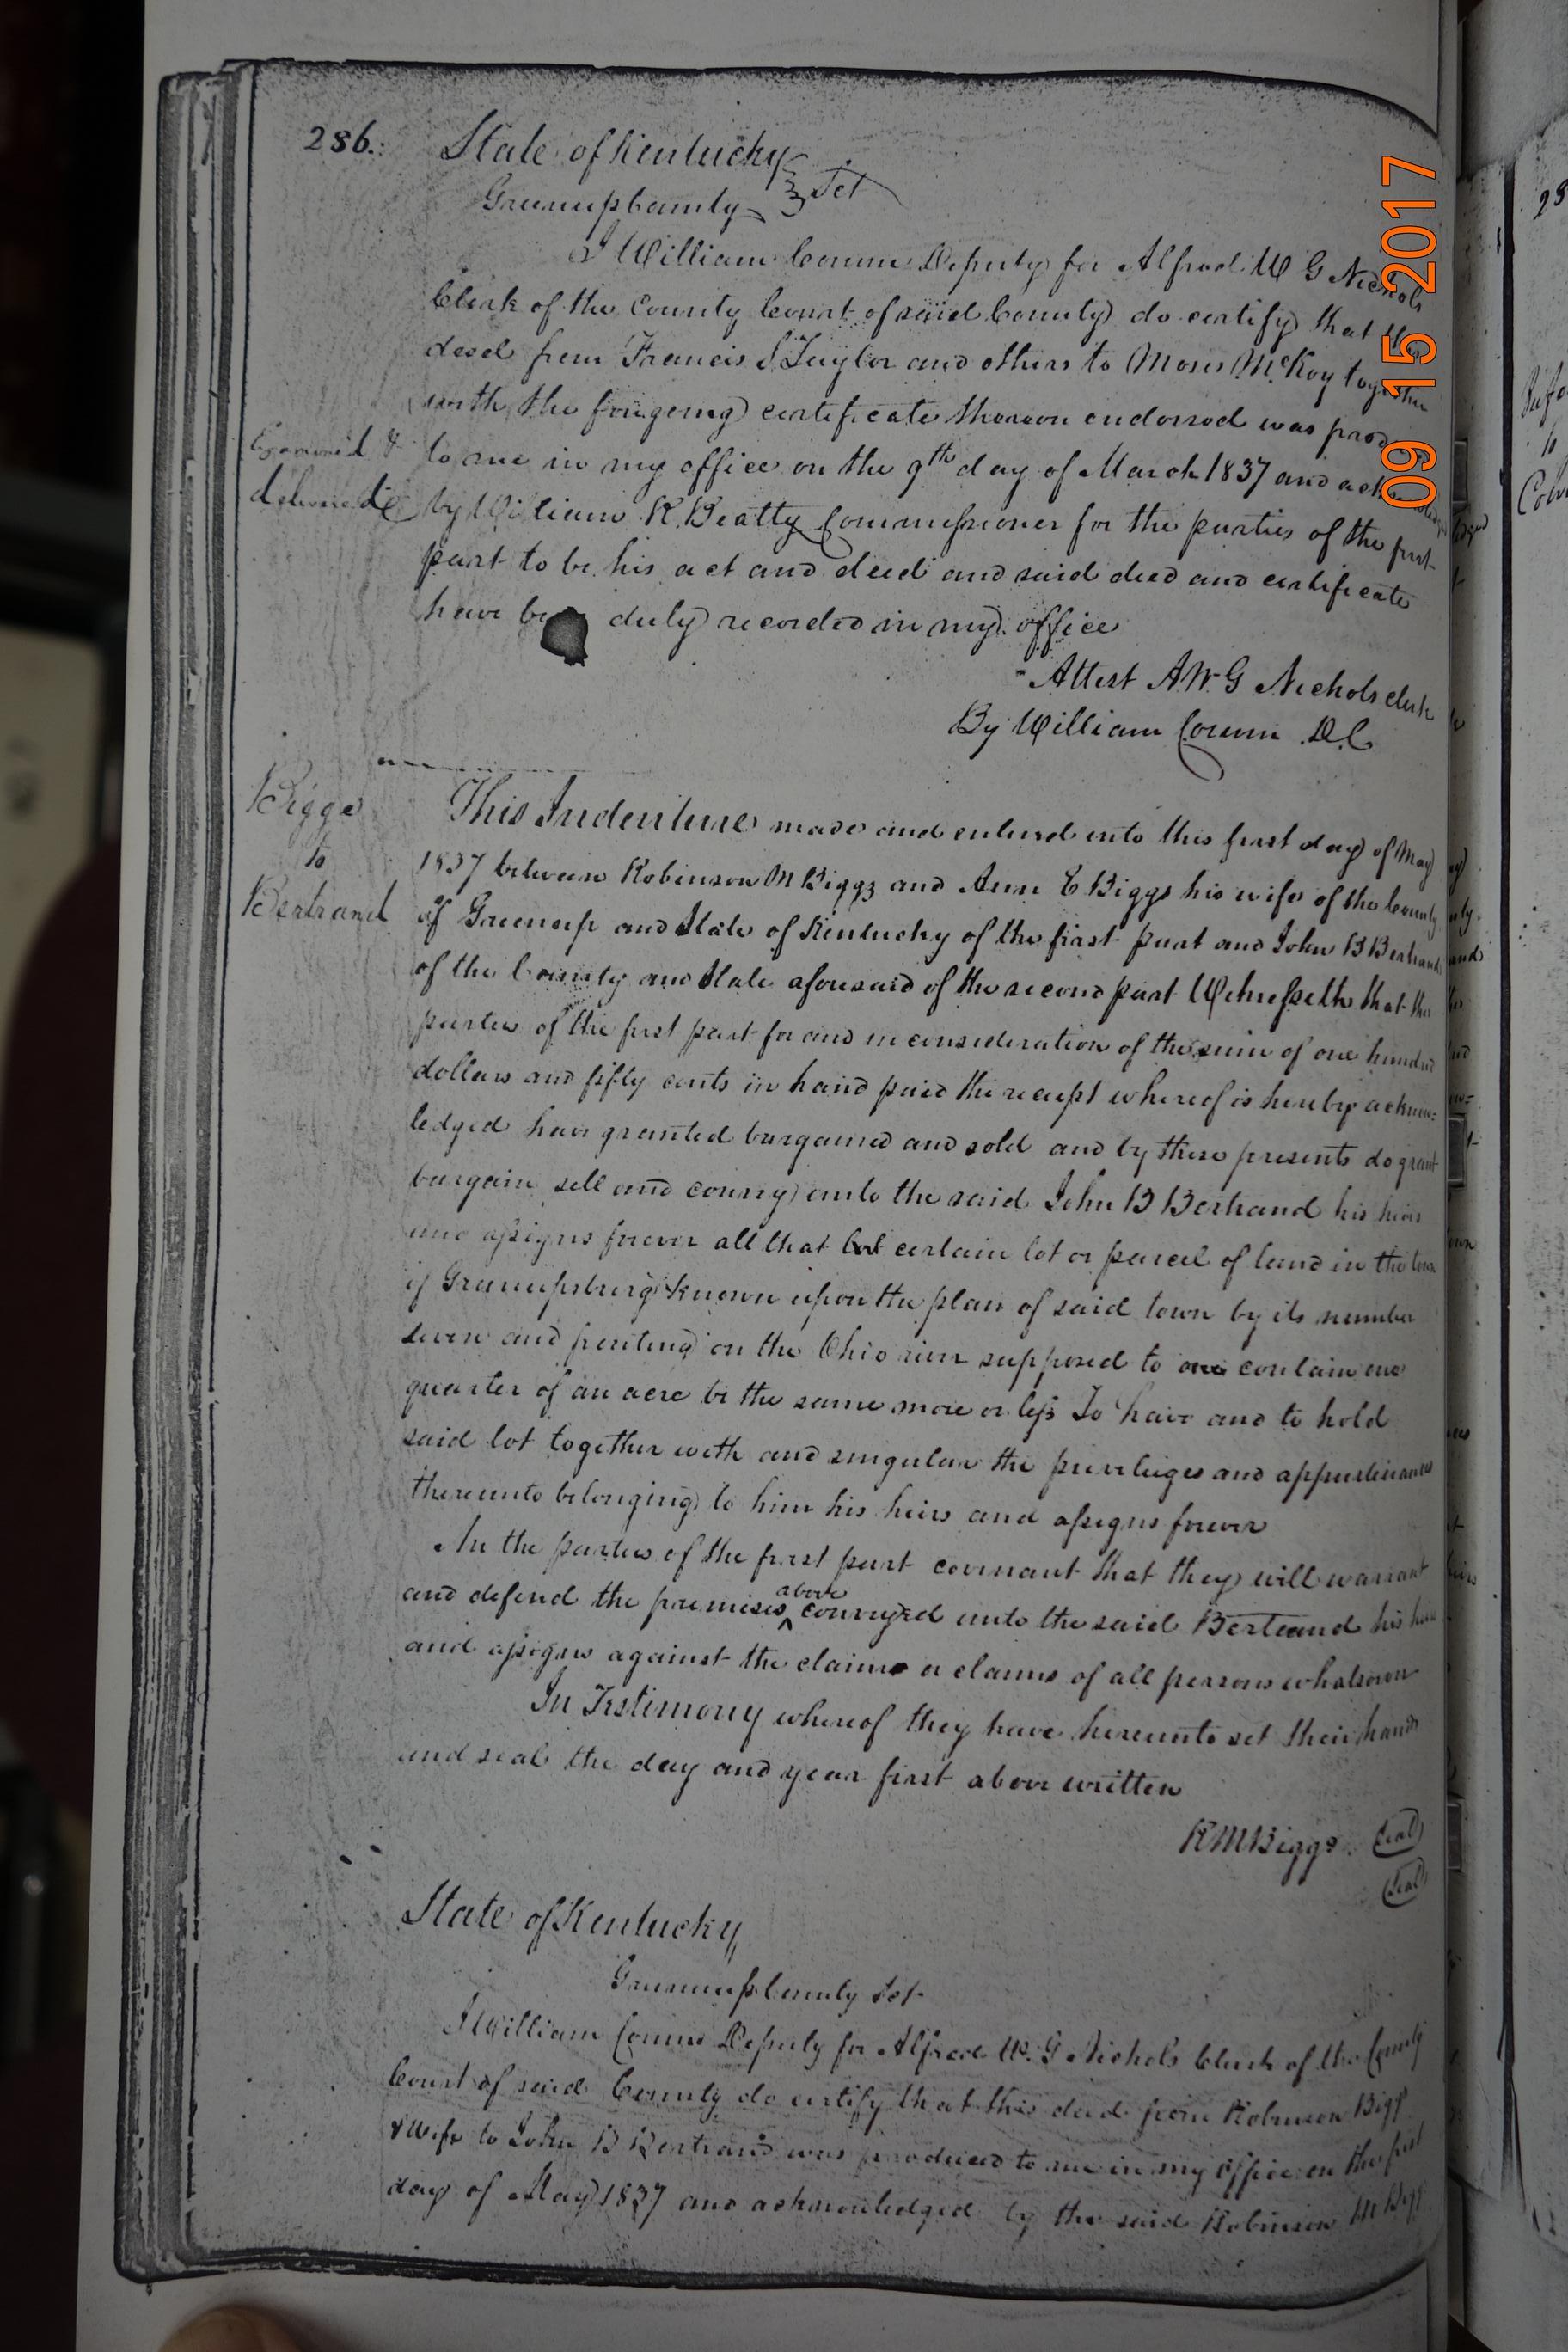 286.
State of Kentucky
Greenup County Sct
I William Corum Deputy for Alfred W G Nichols
Clerk of the County Court of said County do certify that the
deed from Francis S Taylor and others to Moses McKoy together
with the foregoing certificate thereon endorsed was prod
Examined & to me in my office on the 9th day of March 1837 and
delivered by William R. Beatty Commissioner for the parties of the first
part to be his act and deed and said deed and certificate
have duly recorded in my office
Attest A.W.G Nichols clerk
By William Corum D.C
Biggs
to
Bertrand
This Indenture made and entered into this first day of May
1837 between Robinson M Biggs and Anne E Biggs his wife of the County
of Greenup and State of Kentucky of the first part and John B Bertrand
of the County and State aforesaid of the second part Witnesseth that the
parties of the first part for and in consideration of the sum of one hundred
dollars and fifty cents in hand paid the receipt whereof is hereby acknow=
ledged have granted bargained and sold and by these presents do grant
bargain sell and convey unto the said John B Bertrand his heirs
and assigns forever all that certain lot or parcel of land in the town
of Greenupsburg known upon the plan of said town by its number
seven and fronting on the Ohio river supposed to contain one
quarter of an acre be the same more or less To have and to hold
said lot together with and singular the privileges and appurtenances
thereunto belonging to him his heirs and assigns forever
In the parties of the first part covenant that they will warrant
and defend the premises above conveyed unto the said Bertrand his heirs
and assigns against the claim or claims of all persons whatsoever
In Testimony whereof they have hereunto set their hands
and seal the day and year first above written
R M Biggs (Seal)
(Seal)
State of Kentucky
Greenup County Sct
I William Corum Deputy for Alfred W. G Nichols Clerk of the County
Court of said County do certify that this deed from Robinson Biggs
& wife to John B Bertrand was produced to me in my office on the first
day of May 1837 and acknowledged by the said Robinson M Biggs
09 15 2017